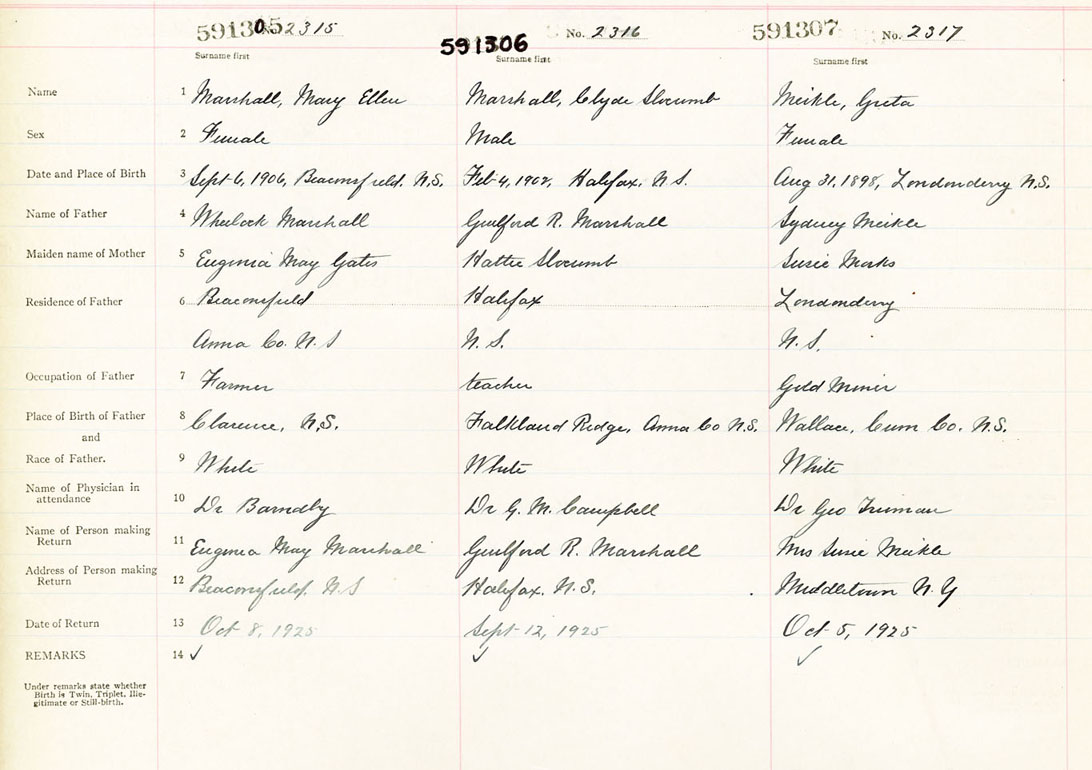 591305 No. 2315 591306 No. 2316 591307 No. 2317
Surname first Surname first Surname first
Name 1 Marshall, Mary Ellen Marshall, Clyde Slocumb Meikle, Greta
Sex 2 Female Male Female
Date and Place of Birth 3 Sept 6, 1906, Beaconsfield. N.S. Feb 4, 1902, Halifax, N.S. Aug 31, 1898, Londonderry N.S.
Name of Father 4 Wheelock Marshall Guilford R. Marshall Sydney Meikle
Maiden name of Mother 5 Eugenia May Gates Hattie Slocumb Susie
Residence of Father 6 Beaconsfield Halifax Londonderry
Anna Co. N.S N.S. N.S.
Occupation of Father 7 Farmer teacher Gold Miner
Place of Birth of Father 8 Clarence, N.S. Falkland Ridge, Anna Co N.S. Wallace, Cum Co. N.S.
and
Race of Father. 9 White White White
Name of Physician in
attendance 10 Dr Barnaby Dr G. M. Campbell Dr Geo
Name of Person making
Return 11 Eugenia May Marshall Guilford R. Marshall Mrs Susie Meikle
Address of Person making
Return 12 Beaconsfield. N.S Halifax. N.S. Middletown N.Y
Date of Return 13 Oct 8, 1925 Sept 12, 1925 Oct 5, 1925
REMARKS 14 ✓ ✓ ✓
Under remarks state whether
Birth is Twin, Triplet, Ille-
gitimate or Still-birth.